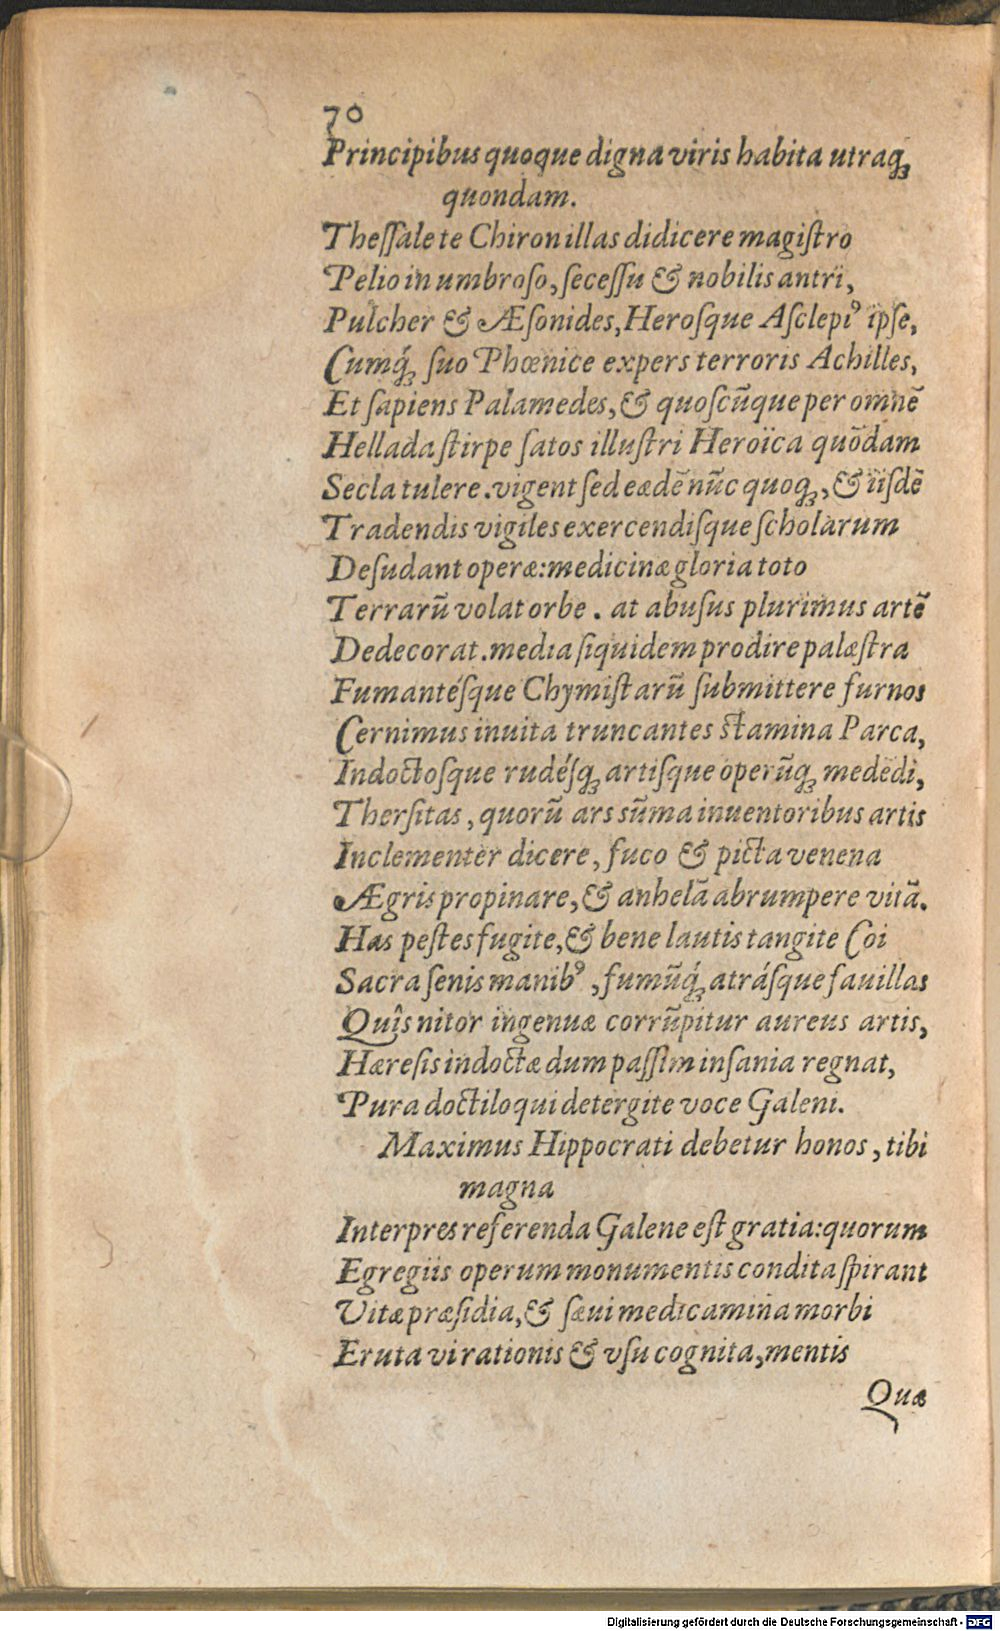 70
Principibus quoque digna viris habita utraqꝫ
quondam.
Theſſale te Chiron illas didicere magiſtro
Pelio in umbroſo, ſeceſſu & nobilis antri,
Pulcher & Æſonides, Heroſque Aſclepiꝰ ipſe,
Cumq́ꝫ ſuo Phœnice expers terroris Achilles,
Et ſapiens Palamedes, & quoſcūque per omnē
Hellada ſtirpe ſatos illuſtri Heroïca quōdam
Secla tulere. vigent ſed eædē nūc quoqꝫ, & iiſdē
Tradendis vigiles exercendiſque ſcholarum
Deſudant operæ: medicinæ gloria toto
Terrarū volat orbe. at abuſus plurimus artē
Dedecorat. media ſiquidem prodire palæſtra
Fumantéſque Chymiſtarū ſubmittere furnos
Cernimus inuita truncantes ſtamina Parca,
Indoctoſque rudéſqꝫ artiſque operūqꝫ medēdi,
Therſitas, quorū ars sūma inuentoribus artis
Inclementer dicere, fuco & picta venena
Ægris propinare, & anhelā abrumpere vitā.
Has peſtes fugite, & bene lautis tangite Coi
Sacra ſenis manibꝰ, fumūq́ꝫ atráſque fauillas
Quîs nitor ingenuæ corrūpitur aureus artis,
Hæreſis indoctæ dum paſſim inſania regnat,
Pura doctiloqui detergite voce Galeni.
Maximus Hippocrati debetur honos, tibi
magna
Interpres referenda Galene eſt gratia: quorum
Egregiis operum monumentis condita ſpirant
Vitæ præſidia, & ſæui medicamina morbi
Eruta vi rationis & vſu cognita, mentis
Quæ
Digitalisierung gefördert durch die Deutsche Forschungsgemeinschaft - DFG